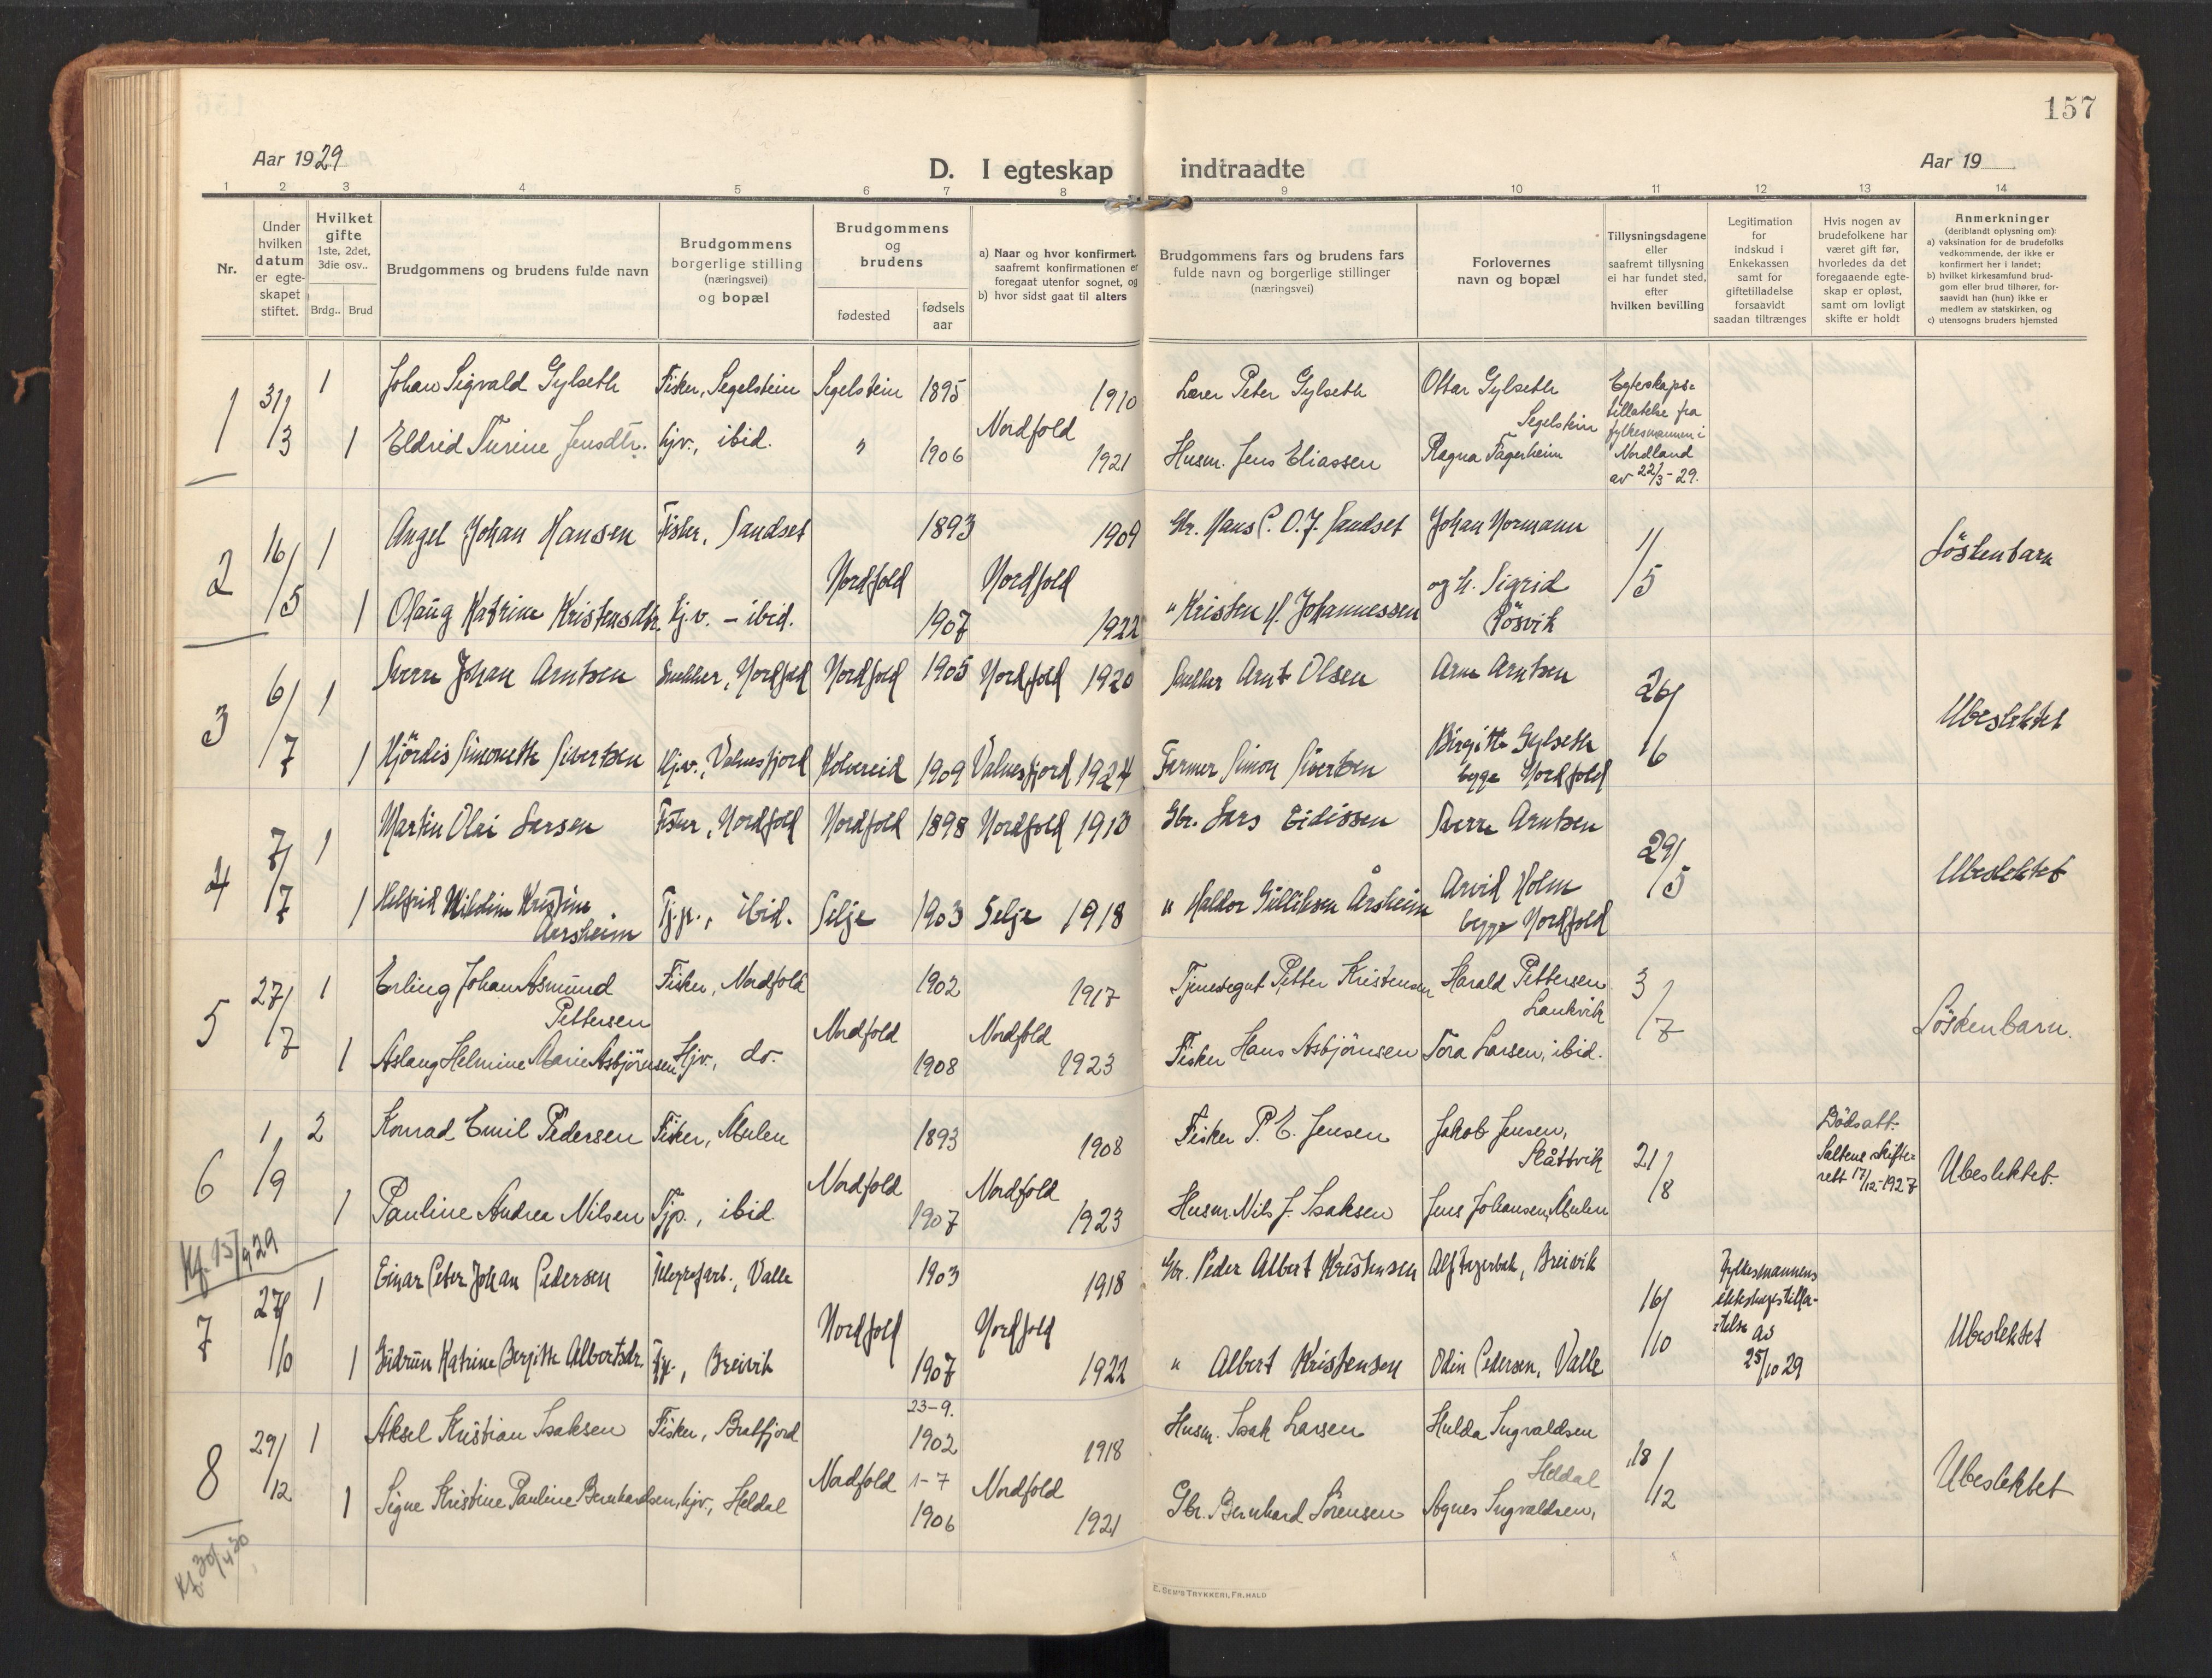 157
Aar 1929
D. I egteskap indtraadte
Aar 19
1 2 3 4 5 6 7 8 9 10 11 12 13 14
Nr.
Under hvilken datum er egte-skapet stiftet.
Hvilket gifte
1ste, 2det, 3die osv..
Brdg.. Brud
Brudgommens og brudens fulde navn
Brudgommens borgerlige stilling (næringsvei) og bopæl
Brudgommens og brudens
fødested
fødsels aar
a) Naar og hvor konfirmert, saafremt konfirmationen er foregaat utenfor sognet, og
b) hvor sidst gaat til alters
Brudgommens fars og brudens fars fulde navn og borgerlige stillinger (næringsvei)
Forlovernes navn og bopæl
Tillysningsdagene eller saafremt tillysning ei har fundet sted, efter hvilken bevilling
Legitimation for indskud i Enkekassen samt for giftetilladelse forsaavidt saadan tiltrænges
Hvis nogen av brudefolkene har været gift før, hvorledes da det foregaaende egte-skap er opløst, samt om lovligt skifte er holdt
Anmerkninger
(deriblandt oplysning om):
a) vaksination for de brudefolks vedkommende, der ikke er konfirmert her i landet;
b) hvilket kirkesamfund brud-gom eller brud tilhører, for-saavidt han (hun) ikke er medlem av statskirken, og
c) utensogns bruders hjemsted
1 31/3 1 Johan Sigvald Gylseth Fisker, Segelstein Segelstein 1895 1910 Lærer Peter Gylseth Ottar Gylseth Egteskaps=
Nordfold Segelstein tillatelse fra
fylkesmannen i
1 Eldrid Turine Jensdtr. hjv., ibid. " 1906 1921 Husm. Jens Eliassen Ragna Fagerheim Nordland
av 22/3-29.
2 16/5 1 Angel Johan Hansen Fisker, Sandset 1893 1909 Gbr. Hans C. O. J. Sandset Johan Normann 1/5 Söskenbarn
Nordfold Nordfold og h. Sigrid
1 Olaug Katrine Kristensdtr. hj.v. - ibid. 1907 1922 " Kristen H. Johannessen Rösvik
3 6/7 1 Sverre Johan Arntsen Snekker, Nordfold Nordfold 1905 Nordfold 1920 Snekker Arnt Olsen Arne Arntsen 26/6 Ubeslektet
1 Hjördis Simonette Sivertsen Hj.v., Valnesfjord Kolvereid 1909 Valnesfjord 1924 Farmer Simon Sivertsen Birgitte Gylseth
begge Nordfold
4 7/7 1 Martin Olai Larsen Fisker, Nordfold Nordfold 1898 Nordfold 1913 Gbr. Lars Eidissen Sverre Arntsen 29/5 Ubeslektet
1 Helfrid Mikdine Kristine Tj.p., ibid. Selje 1903 Selje 1918 " Haldor Gulliksen Årsheim Arvid Holm
Aarsheim begge Nordfold
5 27/7 1 Erling Johan Asmund Fisker, Nordfold 1902 1917 Tjenestegut Petter Kristensen Harald Pettersen 3/7 Söskenbarn.
Pettersen Nordfold Nordfold Lankvik
1 Aslaug Helmine Marie Asbjörnsen Hjv., do. 1908 1923 Fisker Hans Asbjörnsen Tora Larsen, ibid.
6 1/9 2 Konrad Emil Pedersen Fisker, Mulen 1893 1908 Fisker P. E. Jensen Jakob Jensen, 21/8 Dödsatt. Ubeslektet.
Nordfold Nordfold Slåttvik Saltens skifte=
rett 17/12-1927
1 Pauline Andrea Nilsen Tjp., ibid 1907 1923 Husm. Nils J. Isaksen Jens Johansen, Mulen
Kf. 15/9 29
7 27/10 1 Einar Peter Johan Pedersen Telegrafarb., Valle 1903 1918 Gbr. Peder Albert Kristensen Alf Fagerbak, Breivik 16/10 Fylkesmannens Ubeslektet
Nordfold Nordfold ekteskapstilla-
telse av
1 Gudrun Katrine Bergitte Albertsdr. Tjp., Breivik 1907 1922 " Albert Kristensen Odin Pedersen, Valle 25/10 29
23-9.
8 29/12 1 Aksel Kristian Isaksen Fisker, Bratfjord 1902 1918 Husm. Isak Larsen Hulda Ingvaldsen 18/12 Ubeslektet
Nordfold 1-7 Nordfold Heldal
1 Signe Kristine Pauline Bernhardsen, hjv., Heldal 1906 1921 Gbr. Bernhard Sörensen Agnes Ingvaldsen,
Kf. 30/4 30
E. SEM'S TRYKKERI, FR.HALD